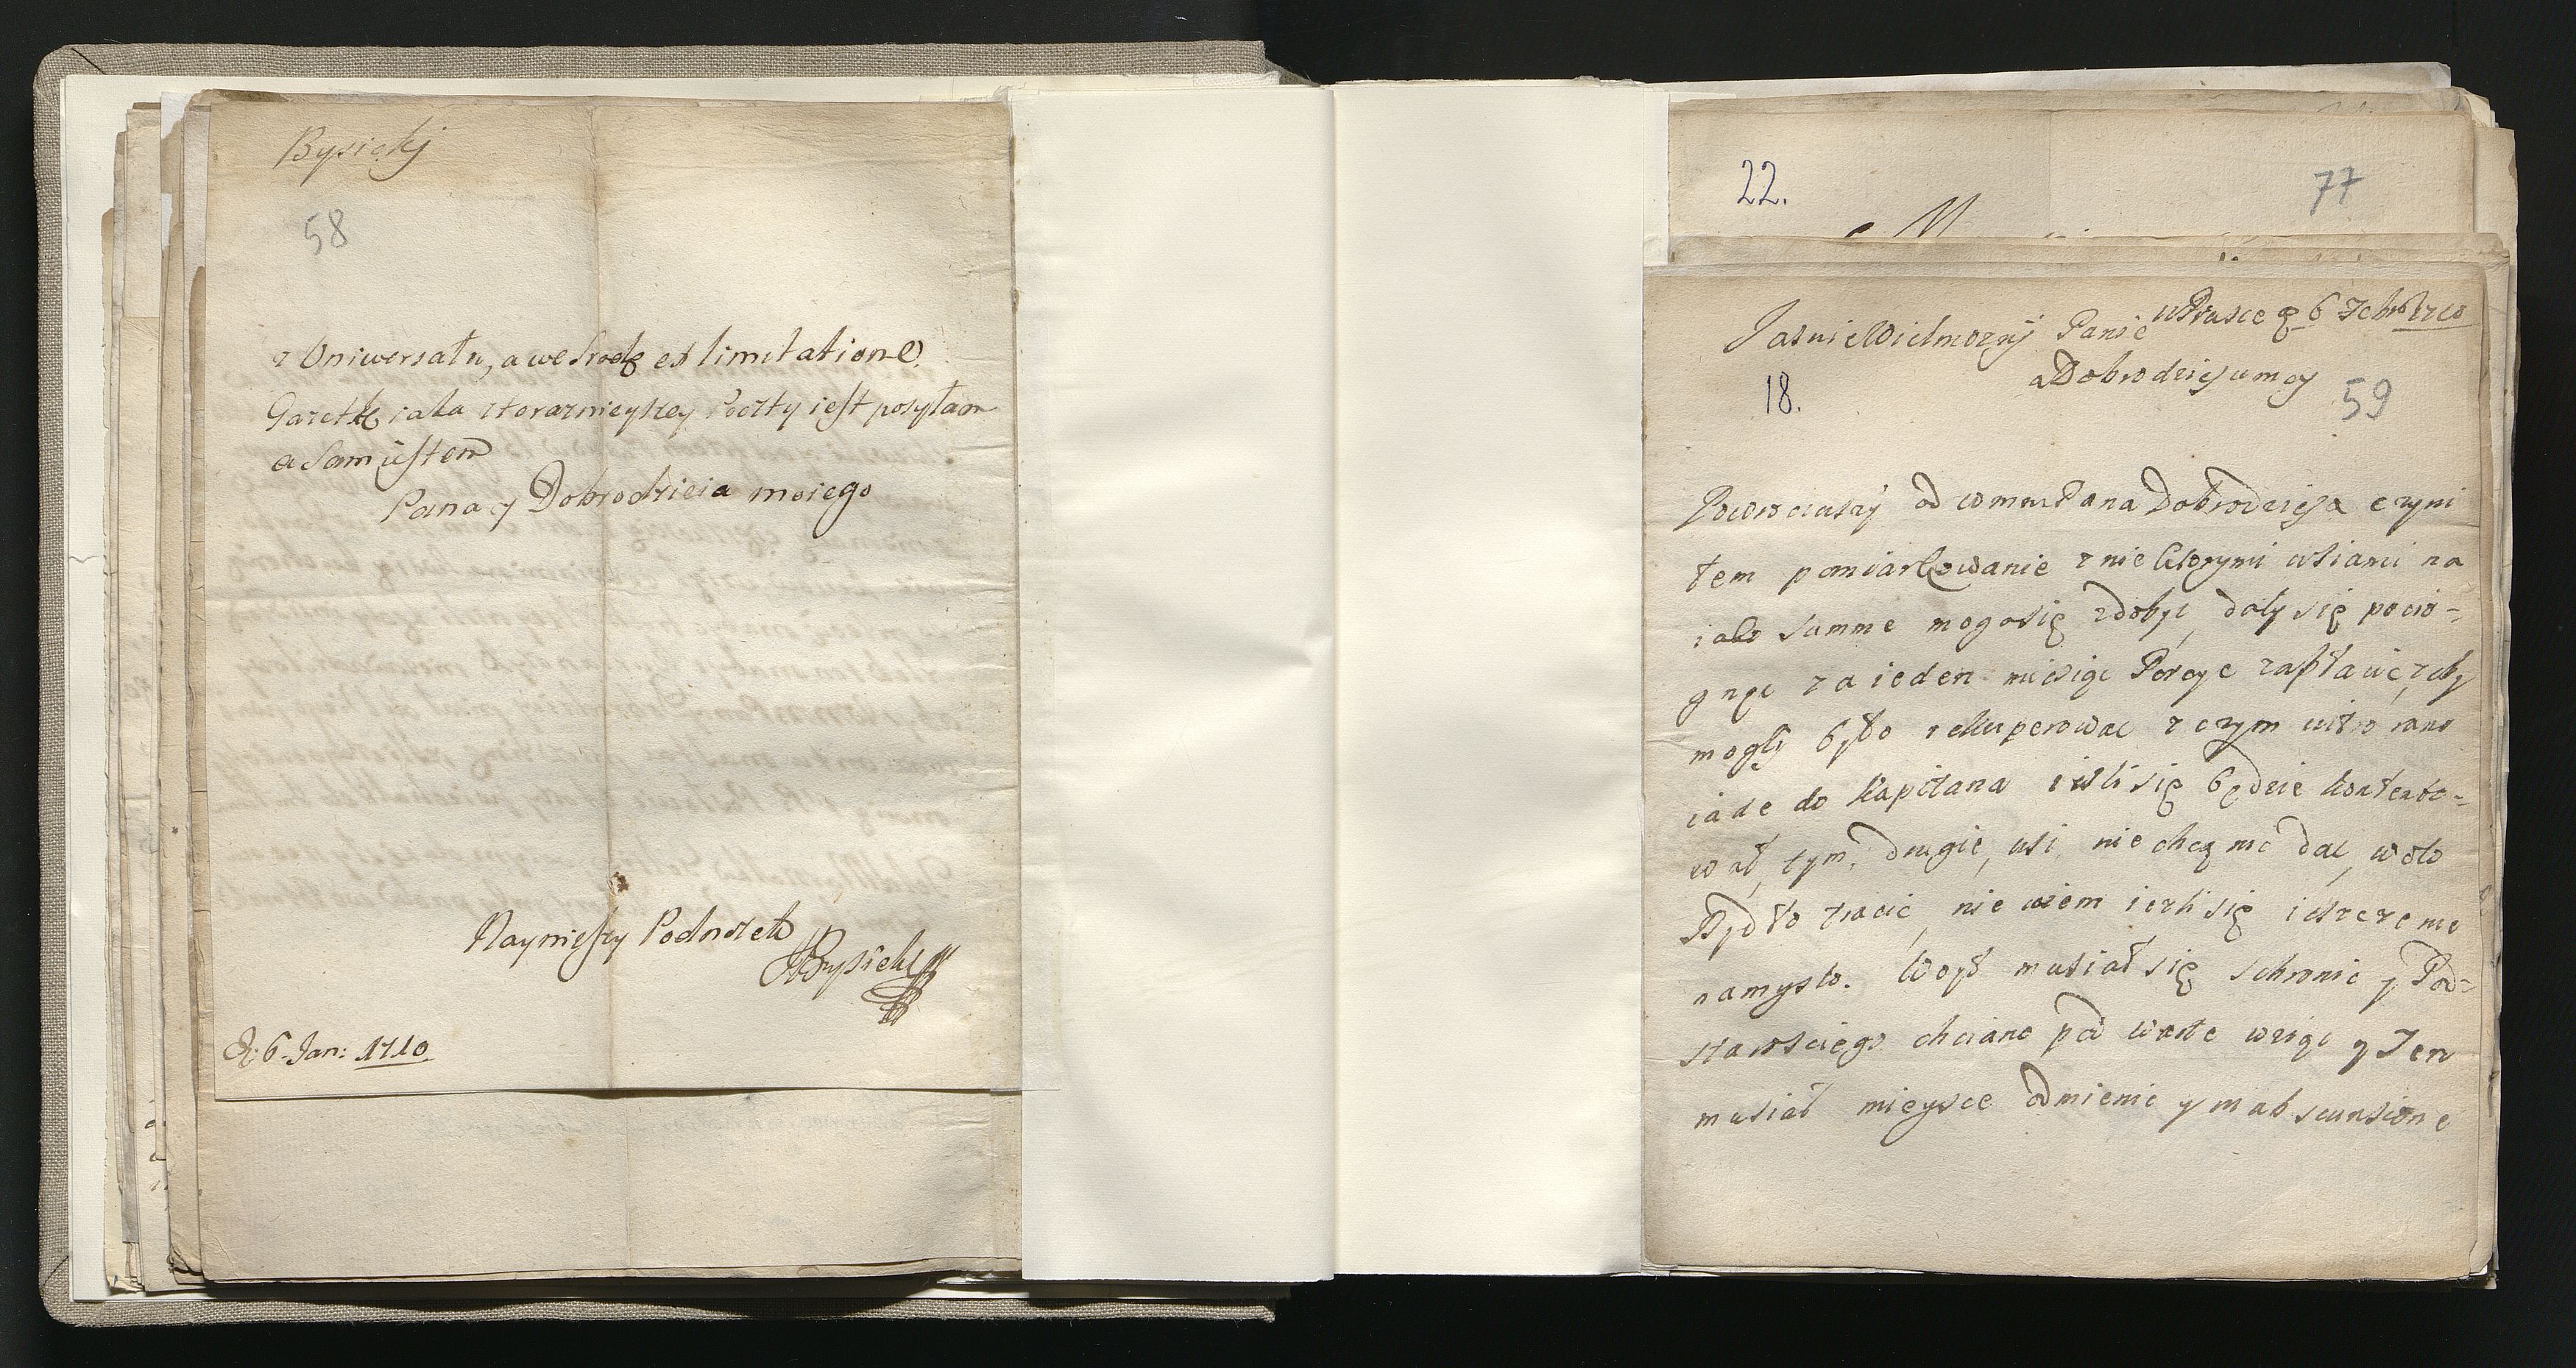 Bysicky
58
z Uniwersału, a we Srodę ex limitatione.
Gazetkę iaka zteraznieyszey Poczty iest posyłam
a Sam iestem
Pana y Dobrodzieia moiego
Nayniższy Podnożek
ABysicky
D: 6. Jan: 1710
22.
77
M
w Prasce d 6 1710
Jasnie Wielmozny Panie
a Dobrodzieju moy
18.
59
Powrociwszy od WMM Pana Dobrodzieja czyni
łem pomiarkowanie z nie ktorymi wsiami na
iako summe mogo się zdobyć, dały się pocio-
gnąc za ieden miesiąc Porcye zapłacić, zeby
mogli Bydło rekuperowac z czym iutro rano
iade do Kapitana iesli się będzie kontento-
wał, tym. drugie, wsi, nie chcą nic dac, wolo
Bydło tracić, nie wiem iezli się ieszcze nie
namyslo. Woyt musiał się schronic y Pod-
starosciego chciano pod warte wziąc y Ten
musiał mieysce odmienic y in abscunsione